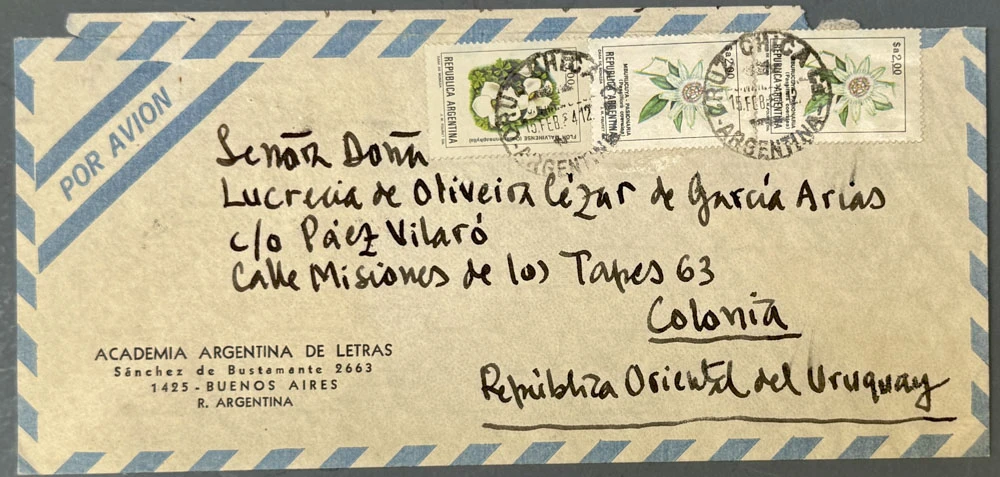 POR AVION
REPUBLICA ARGENTINA
REPUBLICA ARGENTINA
$a2,00
REPUBLICA ARGENTINA
$a2,00
CRUZ CHICA
15.FEB.
ARGENTINA
CRUZ CHICA
15.FEB.
ARGENTINA
Señora Doña
Lucrecia de Oliveira Cézar de García Arias
c/o Páez Vilaró
Calle Misiones de los Tapes 63
Colonia
República Oriental del Uruguay
ACADEMIA ARGENTINA DE LETRAS
Sánchez de Bustamante 2663
1425 - BUENOS AIRES
R. ARGENTINA